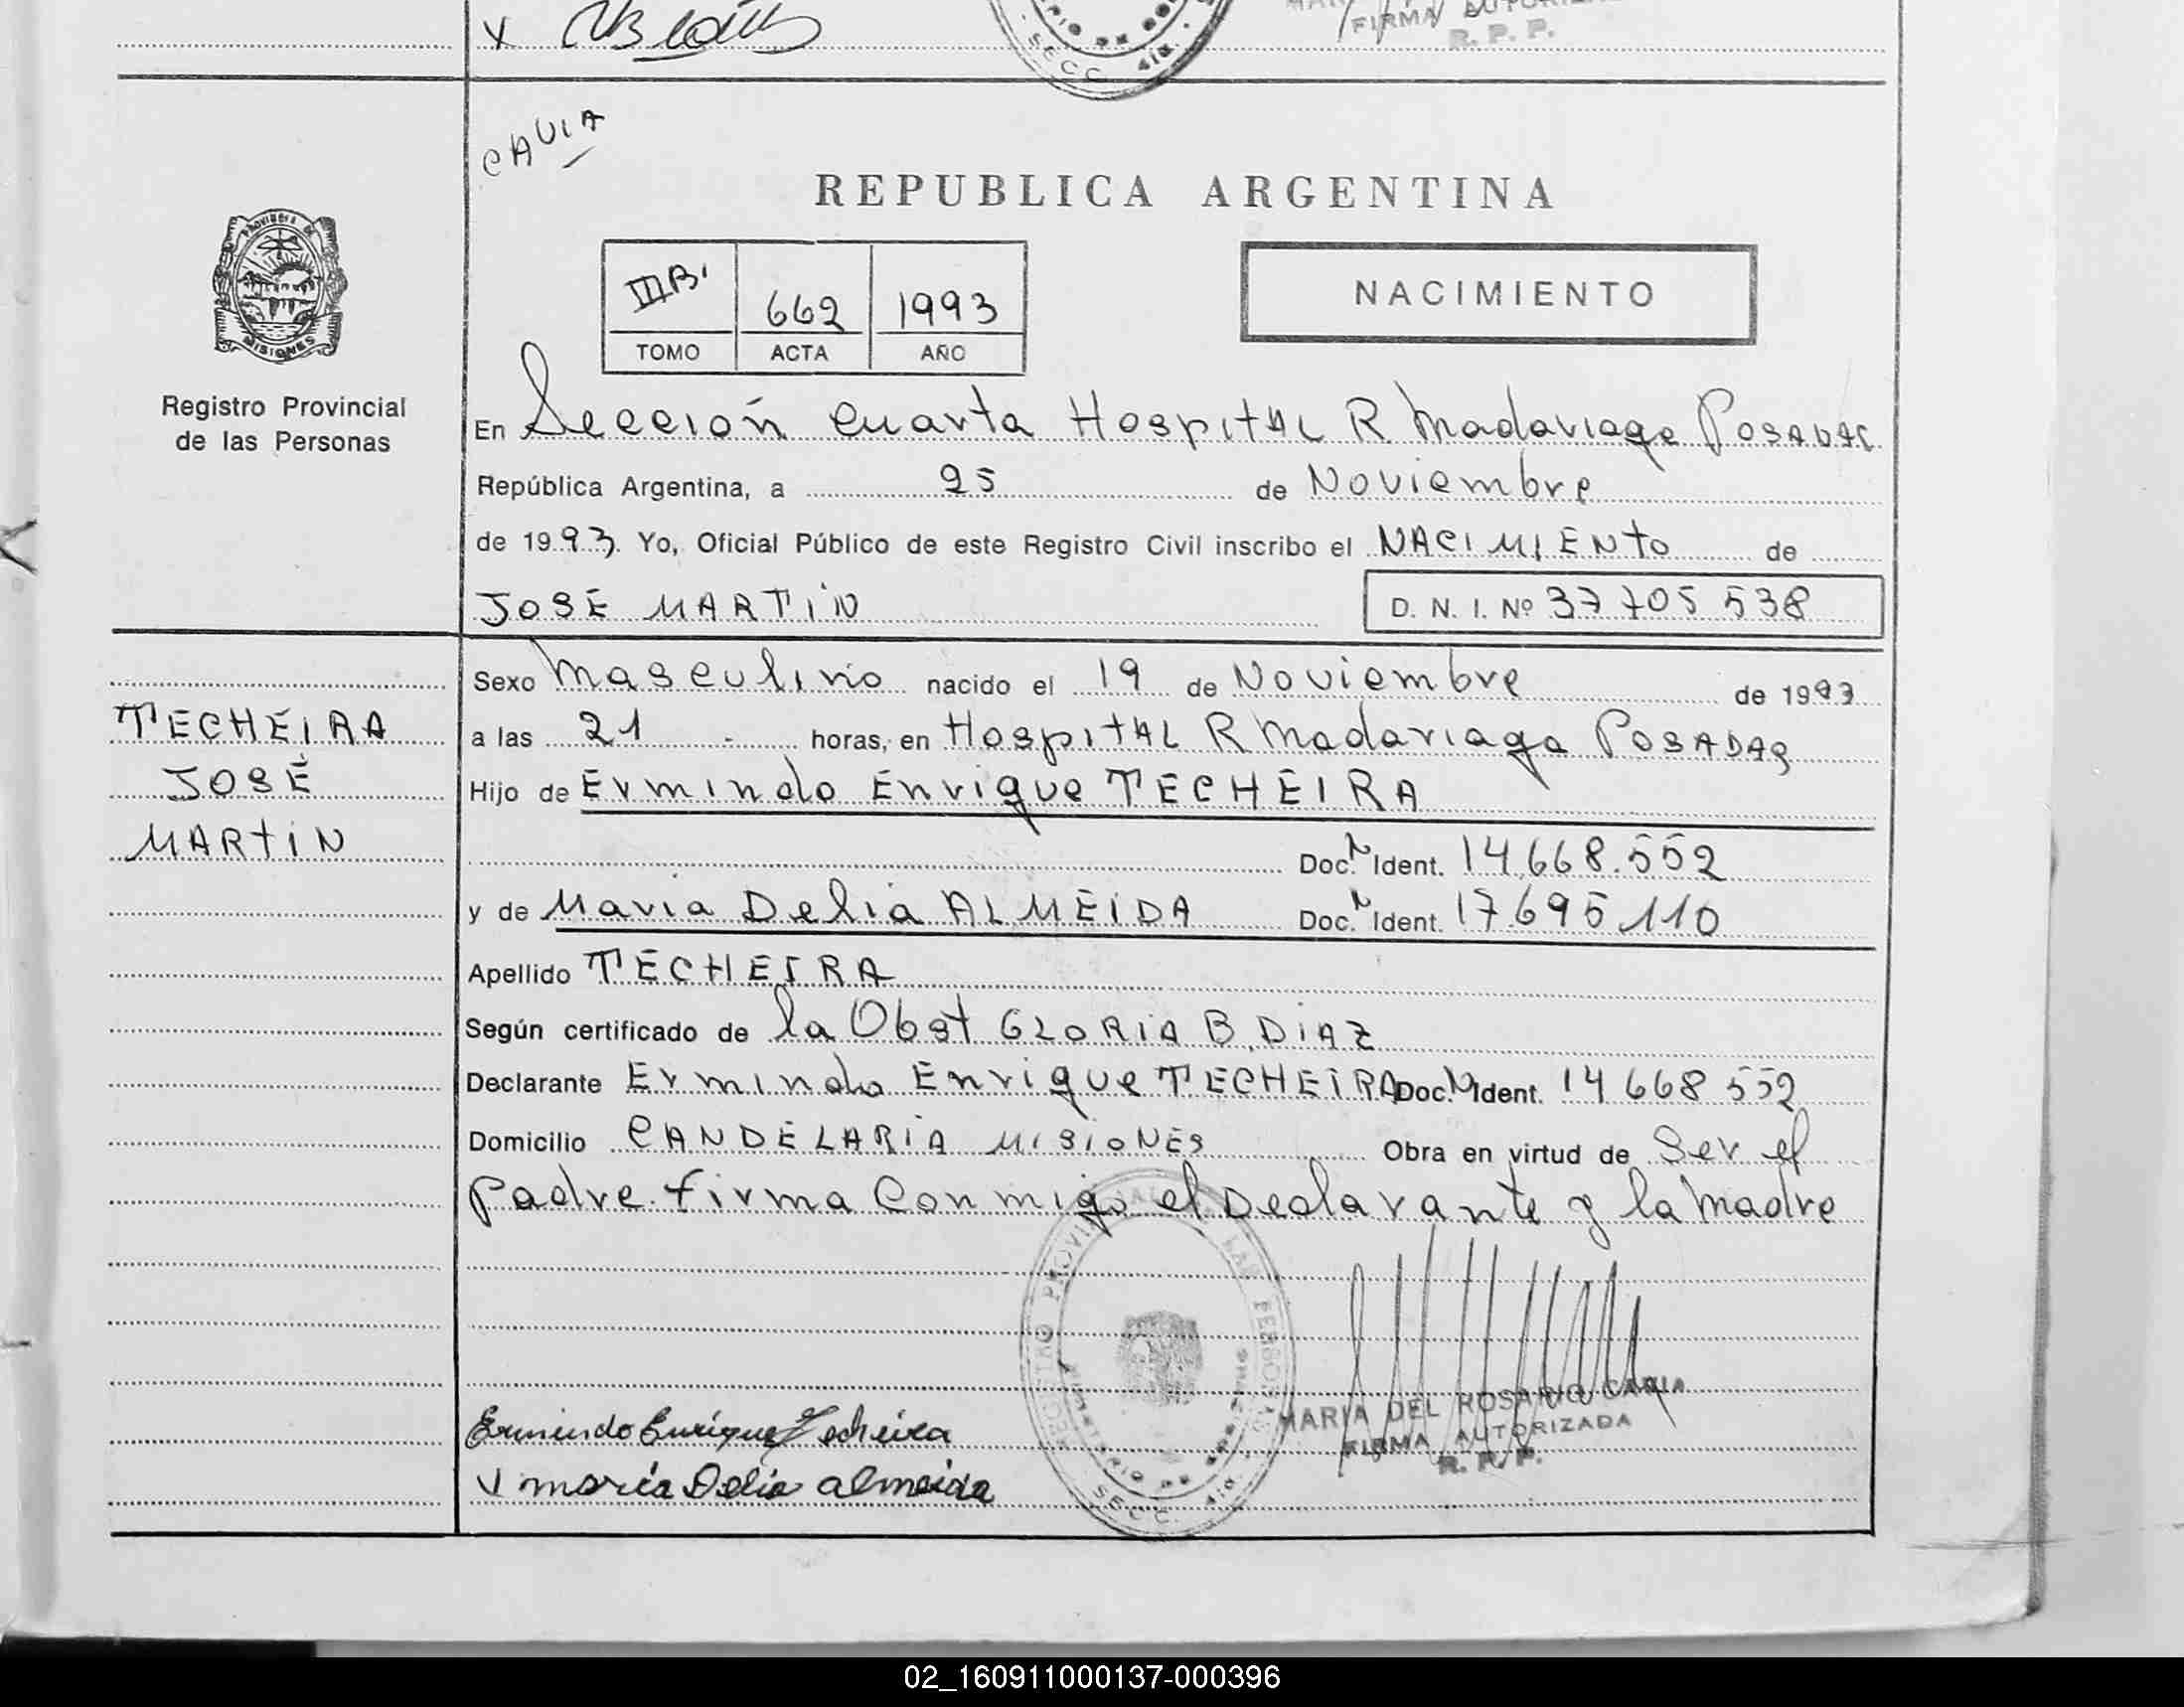 FIRMA AUTORIZ
R. P. P.
SECC. 4ta.
CAVIA
REPUBLICA ARGENTINA
PROVINCIA DE
MISIONES
III B. 662 1993
TOMO ACTA AÑO
NACIMIENTO
Registro Provincial
de las Personas
En Sección Cuarta Hospital R Madariaga POSADAS
República Argentina, a 25 de Noviembre
de 1993. Yo, Oficial Público de este Registro Civil inscribo el NACIMIENTO de
JOSÉ MARTIN D. N. I. Nº 37 705 538
Sexo Masculino nacido el 19 de Noviembre de 1993
a las 21 horas, en Hospital R Madariaga POSADAS
Hijo de Ermindo Enrique TECHEIRA
Doc. N Ident. 14.668.552
y de Maria Delia ALMEIDA Doc. N Ident. 17.695.110
Apellido TECHEIRA
Según certificado de la Obst GLORIA B. DIAZ
Declarante Ermindo Enrique TECHEIRA Doc. N Ident. 14 668 552
Domicilio CANDELARIA MISIONES Obra en virtud de Ser el
padre. firma conmigo el Declarante y la Madre
TECHEIRA
JOSÉ
MARTIN
REGISTRO PROVINCIAL DE LAS PERSONAS
SECC. 4ta.
MARIA DEL ROSARIO CAVIA
FIRMA AUTORIZADA
R. P. P.
Ermindo Enrique Techeira
maria Delia almeida
02_160911000137-000396